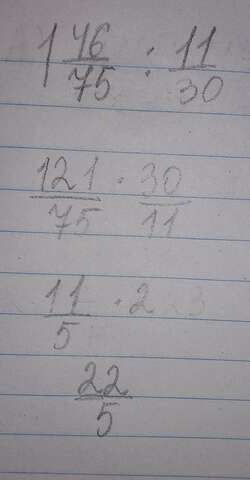 1 46/75 : 11/30
121/75 · 30/11
11/5 · 2
22/5